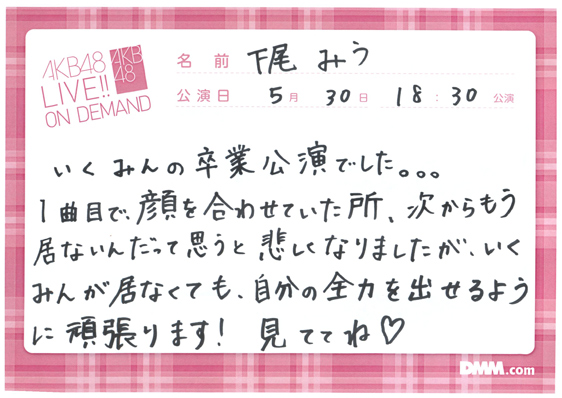 AKB48
LIVE!!
ON DEMAND
AKB
48
名前 下尾 みう
公演日 5月 30日 18:30 公演
いくみんの卒業公演でした。。。
1曲目で、顔を合わせていた所、次からもう
居ないんだって思うと悲しくなりましたが、いく
みんが居なくても、自分の全力を出せるよう
に頑張ります! 見ててね♡
DMM.com